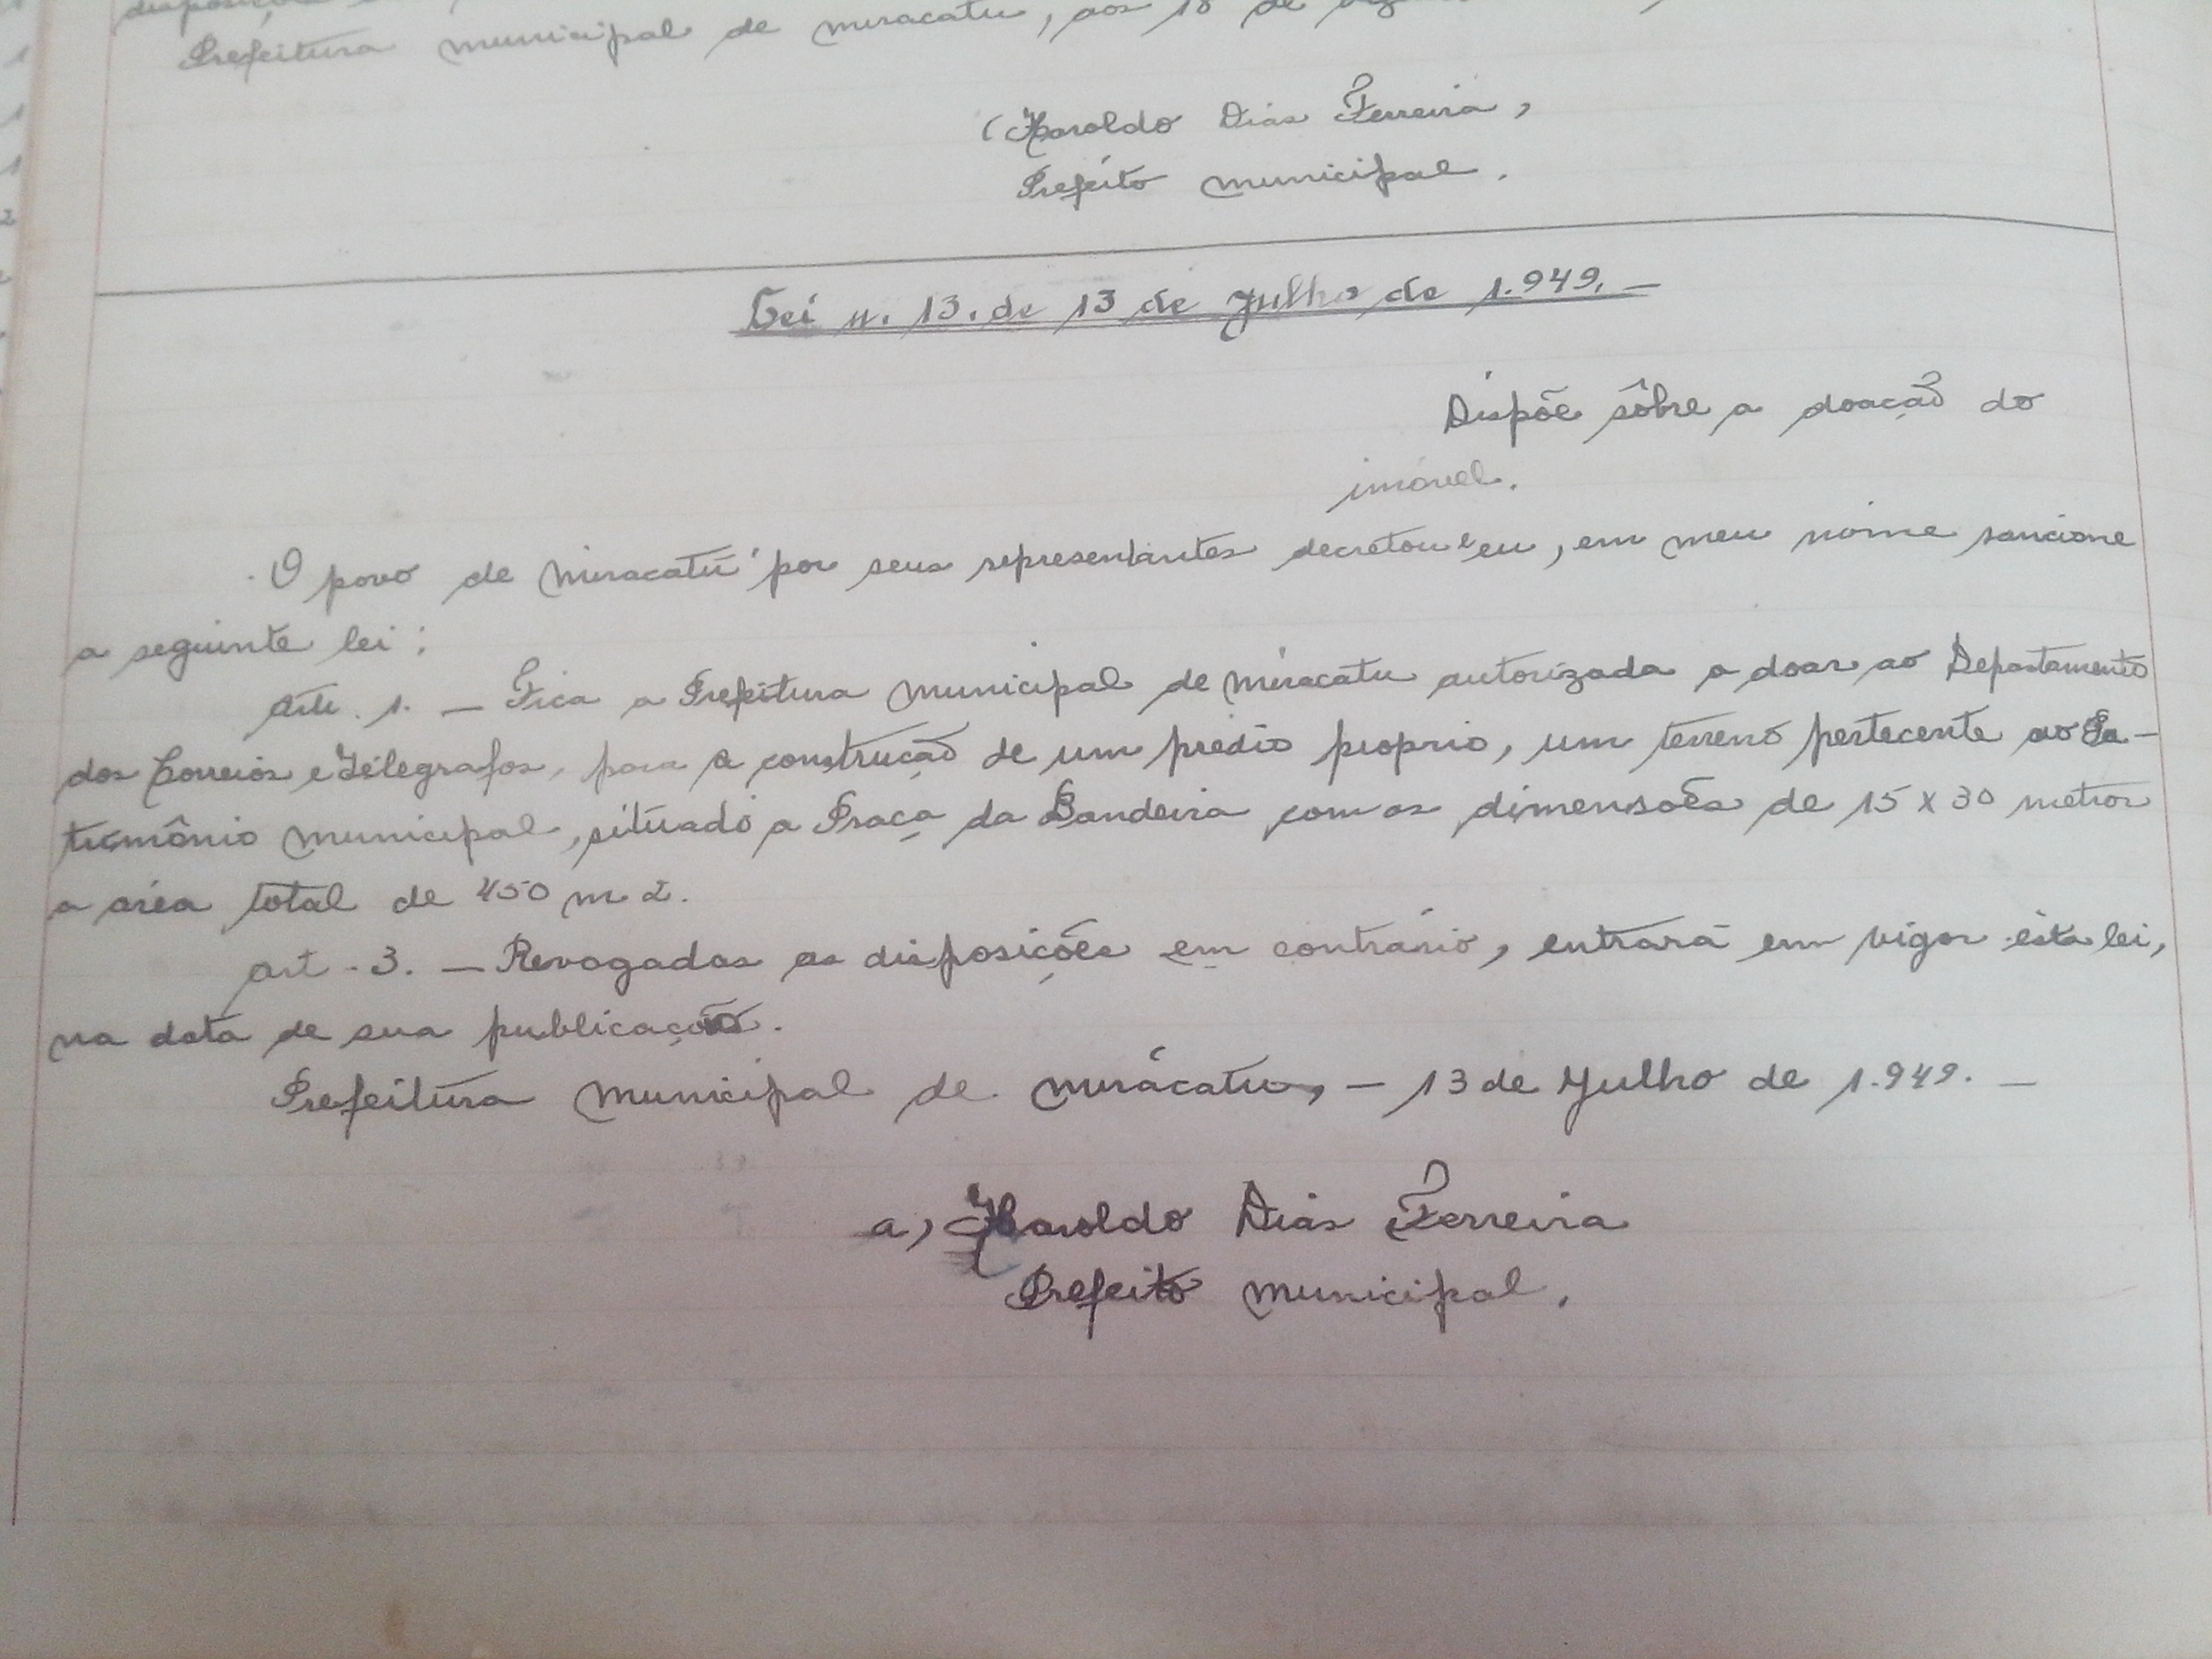 Prefeitura municipal de miracatu, aos 18 de
(Haroldo Dias Ferreira,
Prefeito municipal.
Lei n. 13. de 13 de Julho de 1.949. —
Dispõe sôbre a doação do
imóvel.
O povo de miracatú por seus representantes decretou e eu, em meu nome sancione
a seguinte lei:
Art. 1. — Fica a Prefeitura municipal de miracatu autorizada a doar ao Departamento
dos Correios e Télegrafos, para a construção de um prédio proprio, um terreno pertecente ao Pa-
trimônio municipal, situado a Praça da Bandeira com as dimensões de 15 x 30 metros
a aréa total de 450 m2.
art. 3. — Revogadas as disposições em contrário, entrará em vigor ésta lei,
na data de sua publicação.
Prefeitura municipal de miracatu, — 13 de Julho de 1.949. —
a) Haroldo Dias Ferreira
Prefeito municipal.